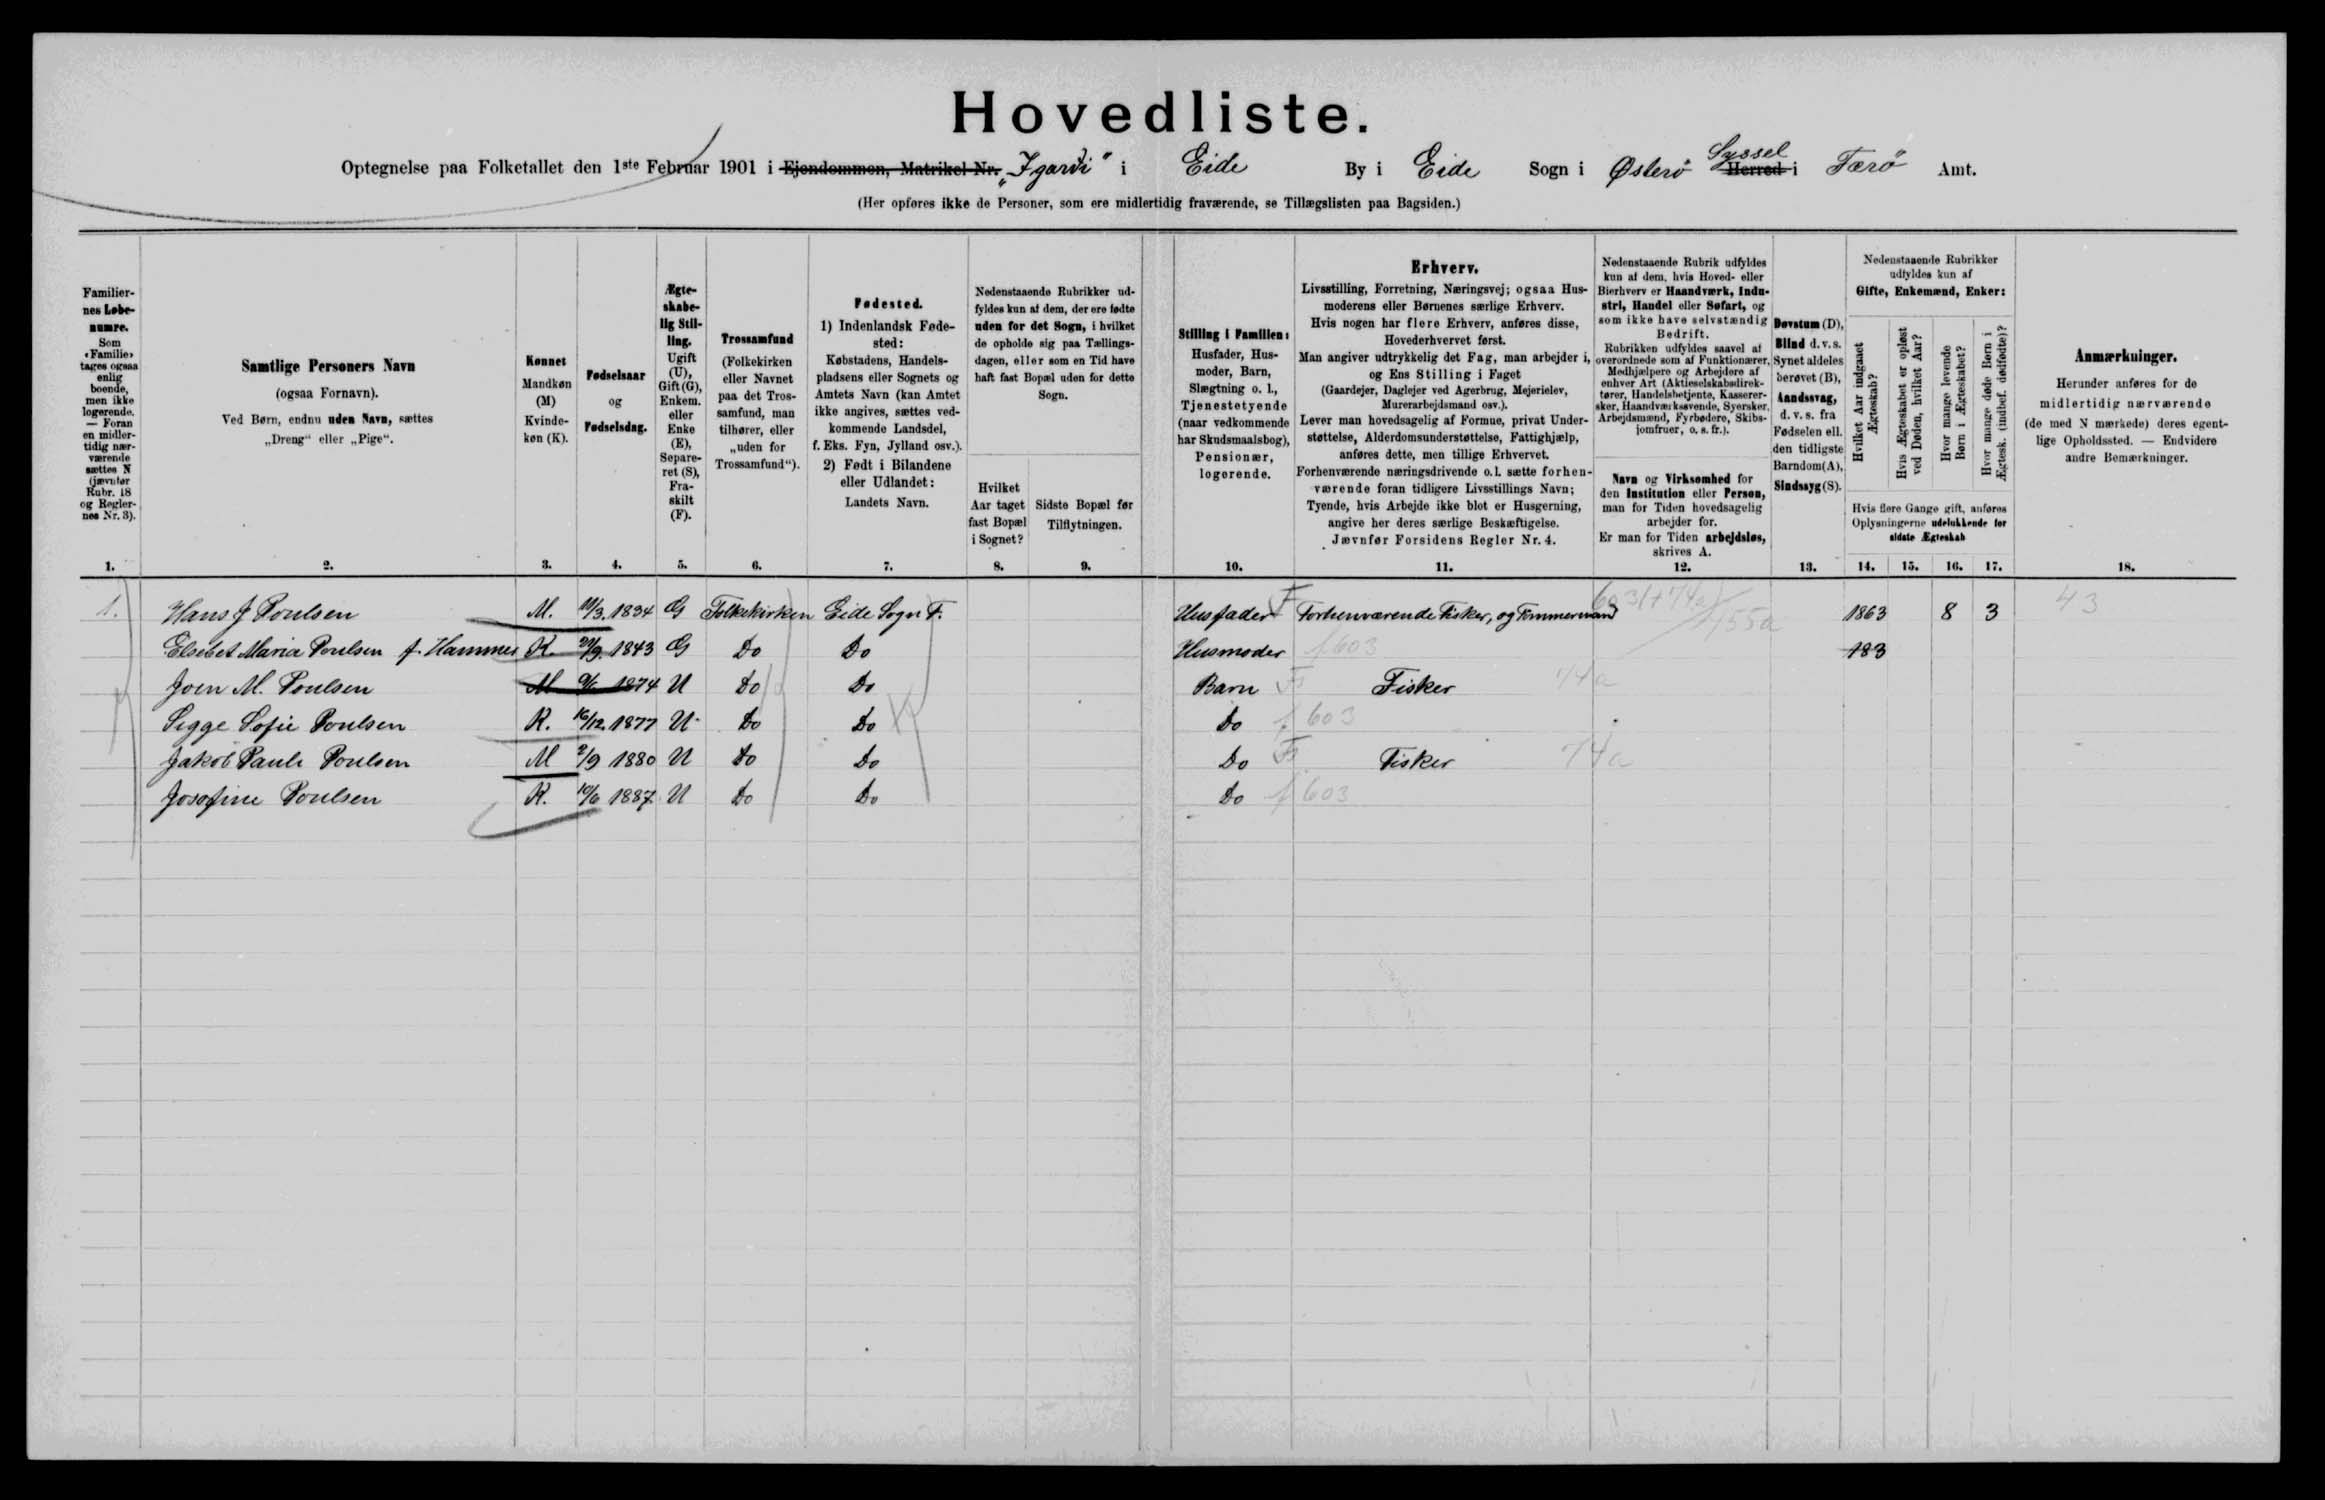 Hovedliste.
Optegnelse paa Folketallet den 1ste Februar 1901 i Ejendommen, Matrikel Nr. „I garði" i Eide By i Eide Sogn i Østerø Syssel Herred i Færø Amt.
(Her opføres ikke de Personer, som ere midlertidig fraværende, se Tillægslisten paa Bagsiden.)
Familiernes Løbenumre. Som «Familie» tages ogsaa enlig boende, men ikke logerende. — Foran en midlertidig nærværende sættes N (jævnfør Rubr. 18 og Reglernes Nr. 3).
Samtlige Personers Navn (ogsaa Fornavn). Ved Børn, endnu uden Navn, sættes „Dreng“ eller „Pige“.
Kønnet Mandkøn (M) Kvindekøn (K).
Fødselsaar og Fødselsdag.
Ægteskabelig Stilling. Ugift (U), Gift (G), Enkem. eller Enke (E), Separeret (S), Fraskilt (F).
Trossamfund (Folkekirken eller Navnet paa det Trossamfund, man tilhører, eller „uden for Trossamfund“).
Fødested. 1) Indenlandsk Fødested: Købstadens, Handelspladsens eller Sognets og Amtets Navn (kan Amtet ikke angives, sættes vedkommende Landsdel, f. Eks. Fyn, Jylland osv.). 2) Født i Bilandene eller Udlandet: Landets Navn.
Nedenstaaende Rubrikker udfyldes kun af dem, der ere fødte uden for det Sogn, i hvilket de opholde sig paa Tællingsdagen, eller som en Tid have haft fast Bopæl uden for dette Sogn.
Hvilket Aar taget fast Bopæl i Sognet?
Sidste Bopæl før Tilflytningen.
Stilling i Familien: Husfader, Husmoder, Barn, Slægtning o. l., Tjenestetyende (naar vedkommende har Skudsmaalsbog), Pensionær, logerende.
Erhverv.
Livsstilling, Forretning, Næringsvej; ogsaa Husmoderens eller Børnenes særlige Erhverv.
Hvis nogen har flere Erhverv, anføres disse, Hovederhvervet først.
Man angiver udtrykkelig det Fag, man arbejder i, og Ens Stilling i Faget
(Gaardejer, Daglejer ved Agerbrug, Mejerielev, Murerarbejdsmand osv.).
Lever man hovedsagelig af Formue, privat Understøttelse, Alderdomsunderstøttelse, Fattighjælp, anføres dette, men tillige Erhvervet.
Forhenværende næringsdrivende o. l. sætte forhenværende foran tidligere Livsstillings Navn;
Tyende, hvis Arbejde ikke blot er Husgerning, angive her deres særlige Beskæftigelse.
Jævnfør Forsidens Regler Nr. 4.
Nedenstaaende Rubrik udfyldes kun af dem, hvis Hoved- eller Bierhverv er Haandværk, Industri, Handel eller Søfart, og som ikke have selvstændig Bedrift.
Rubrikken udfyldes saavel af overordnede som af Funktionærer, Medhjælpere og Arbejdere af enhver Art (Aktieselskabsdirektører, Handelsbetjente, Kasserersker, Haandværkssvende, Syersker, Arbejdsmænd, Fyrbødere, Skibsjomfruer, o. s. fr.).
Navn og Virksomhed for den Institution eller Person, man for Tiden hovedsagelig arbejder for.
Er man for Tiden arbejdsløs, skrives A.
Døvstum (D), Blind d. v. s. Synet aldeles berøvet (B), Aandssvag, d. v. s. fra Fødselen ell. den tidligste Barndom (A), Sindssyg (S).
Nedenstaaende Rubrikker udfyldes kun af Gifte, Enkemænd, Enker:
Hvilket Aar indgaaet Ægteskab?
Hvis Ægteskabet er opløst ved Døden, hvilket Aar?
Hvor mange levende Børn i Ægteskabet?
Hvor mange døde Børn i Ægtesk. (indbef. dødfødte)?
Hvis flere Gange gift, anføres Oplysningerne udelukkende for sidste Ægteskab
Anmærkninger.
Herunder anføres for de midlertidig nærværende (de med N mærkede) deres egentlige Opholdssted. — Endvidere andre Bemærkninger.
1. 2. 3. 4. 5. 6. 7. 8. 9. 10. 11. 12. 13. 14. 15. 16. 17. 18.
1. Hans J Poulsen M. 11/3. 1834 G Folkekirken Eide Sogn F. Husfader F Forhenværende Fisker, og Tømmermand 603 (+74a) 155a 1863 8 3 43
Elsebet Maria Poulsen f. Hammer K. 1843 G Do Do Husmoder f 603 183
Joen M. Poulsen M 1874 U Do Do Barn F Fisker 74a
Sigge Sofie Poulsen K. 16/12. 1877 U Do Do Do f 603
Jakob Pauli Poulsen M 2/9 1880 U Do Do Do F Fisker 74a
Josefine Poulsen K. 10/6 1887 U Do Do Do f 603